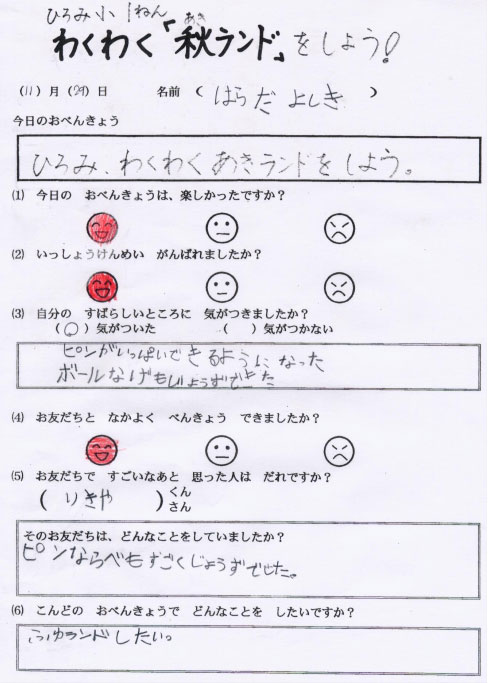 ひろみ小 1ねん
わくわく「秋ランド」をしよう!
あき
(11)月(29)日 名前 (はらだ よしき)
今日のおべんきょう
ひろみ、わくわく あきランドを しよう。
(1) 今日の おべんきょうは、楽しかったですか?
(2) いっしょうけんめい がんばれましたか?
(3) 自分の すばらしいところに 気がつきましたか?
(○)気がついた ( )気がつかない
ピンがいっぱいできるようになった
ボールなげもじょうずできた
(4) お友だちと なかよく べんきょう できましたか?
(5) お友だちで すごいなあと 思った人は だれですか?
(りきや) くん
さん
そのお友だちは、どんなことをしていましたか?
ピンならべもすごくじょうずでした。
(6) こんどの おべんきょうで どんなことを したいですか?
ふゆランドしたい。